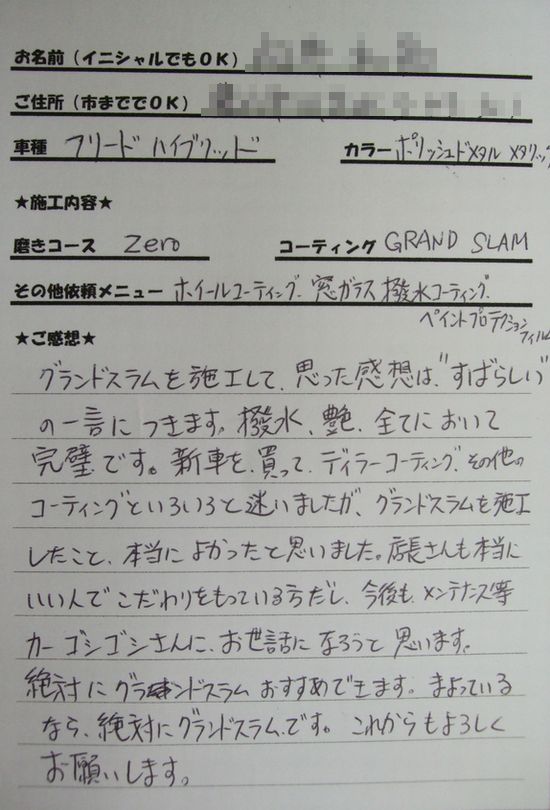 お名前（イニシャルでもOK）
ご住所（市まででOK）
車種 フリード ハイブリッド カラー ポリッシュドメタル メタリック
★施工内容★
磨きコース Zero コーティング GRAND SLAM
その他依頼メニュー ホイールコーティング、窓ガラス撥水コーティング、
ペイントプロテクション
フィルム
★ご感想★
グランドスラムを施工して、思った感想は、"すばらしい"
の一言につきます。撥水、艶、全てにおいて
完璧です。新車を、買って、ディラーコーティング、その他の
コーティングといろいろと迷いましたが、グランドスラムを施工
したこと、本当によかったと思いました。店長さんも本当に
いい人でこだわりをもっている方だし、今後も、メンテナンス等
カーゴシゴシさんに、お世話になろうと思います。
絶対にグランドスラムおすすめできます。まよっている
なら、絶対にグランドスラムです。これからもよろしく
お願いします。